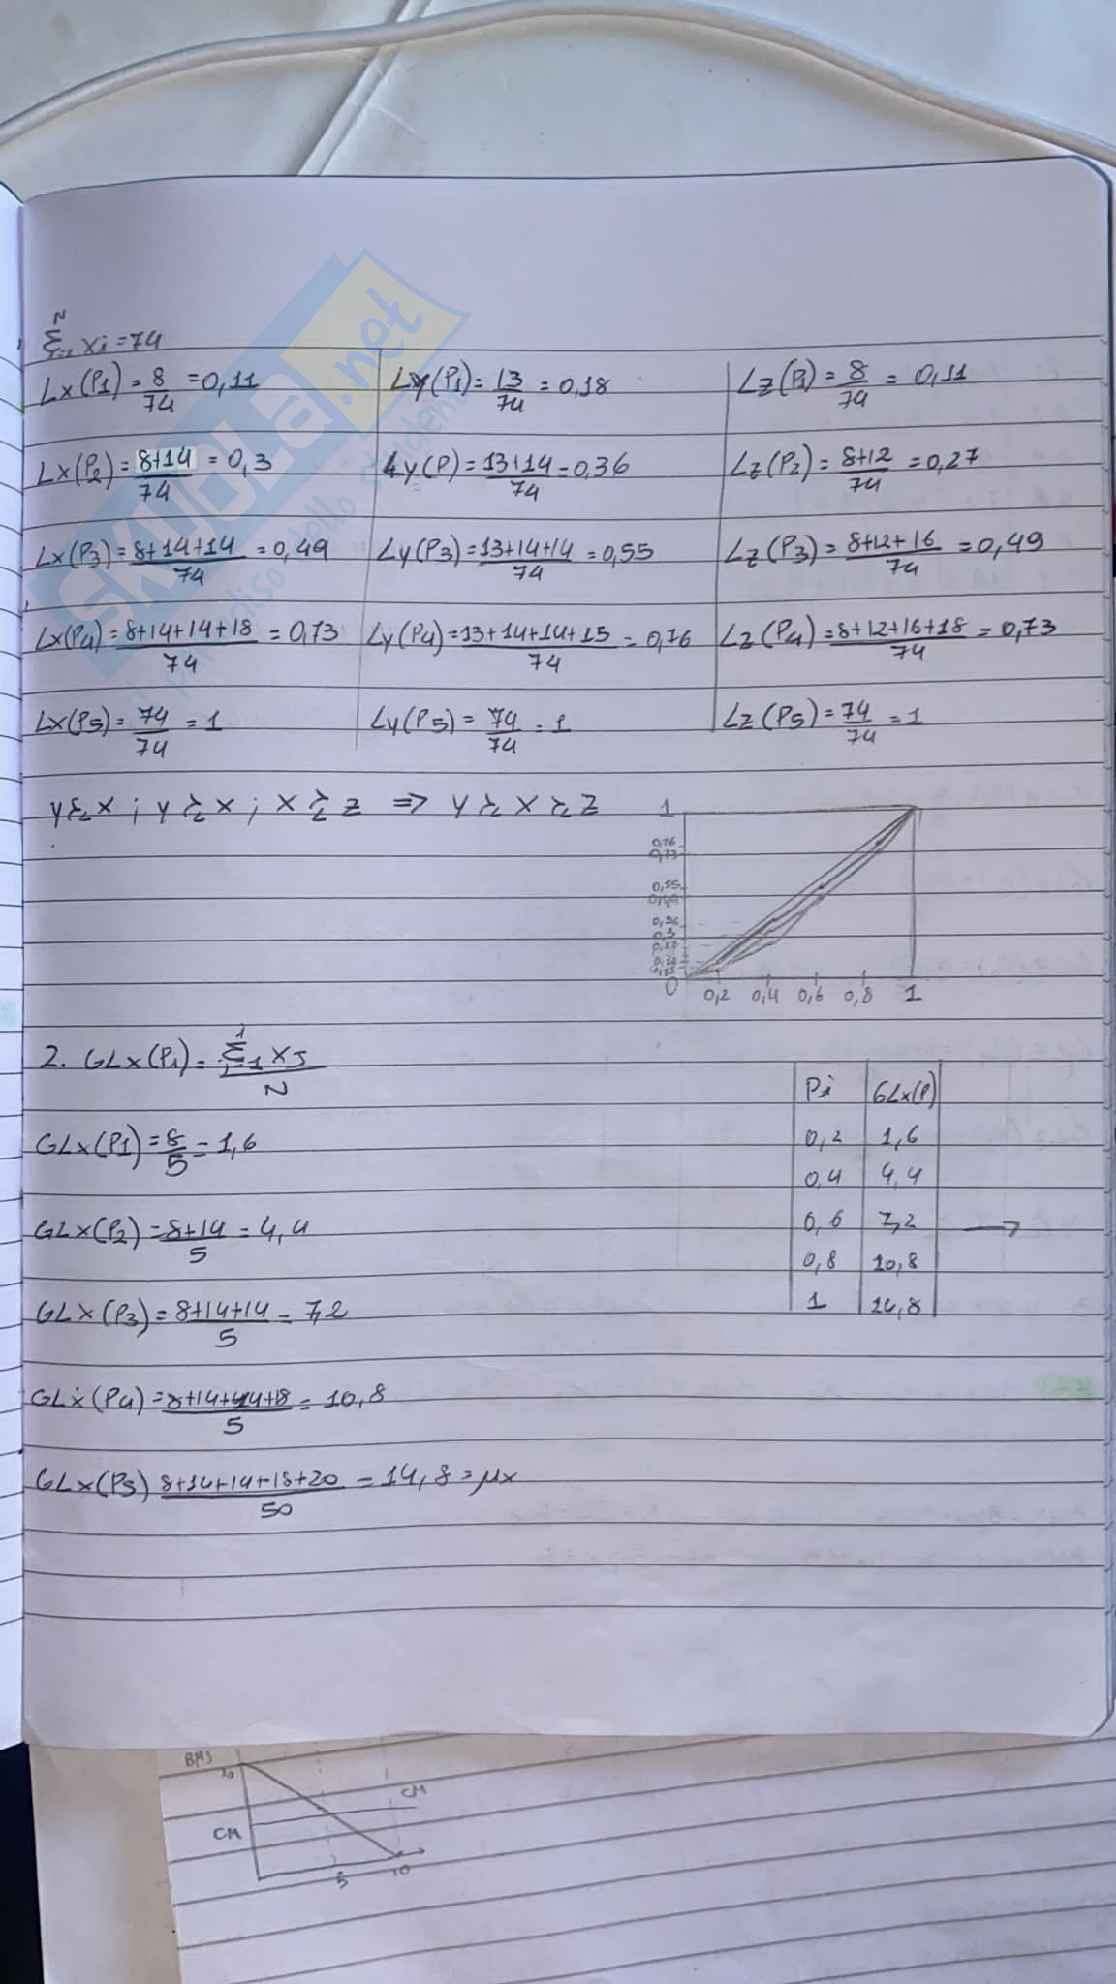 N
Σ xi = 74
i=1
Lx(P1) = 8/74 = 0,11
Ly(P1) = 13/74 = 0,18
Lz(P1) = 8/74 = 0,11
Lx(P2) = 8+14/74 = 0,3
Ly(P) = 13+14/74 = 0,36
Lz(P2) = 8+12/74 = 0,27
Lx(P3) = 8+14+14/74 = 0,49
Ly(P3) = 13+14+14/74 = 0,55
Lz(P3) = 8+12+16/74 = 0,49
Lx(P4) = 8+14+14+18/74 = 0,73
Ly(P4) = 13+14+14+15/74 = 0,76
Lz(P4) = 8+12+16+18/74 = 0,73
Lx(P5) = 74/74 = 1
Ly(P5) = 74/74 = 1
Lz(P5) = 74/74 = 1
y ≿L x ; y ≿L x ; x ≿L z ⇒ y ≿L x ≿L z
1
0,76
0,73
0,55
0,49
0,36
0,3
0
0,2 0,4 0,6 0,8 1
2. GLx(Pi) = Σ xj / N
GLx(P1) = 8/5 = 1,6
GLx(P2) = 8+14/5 = 4,4
GLx(P3) = 8+14+14/5 = 7,2
GLx(P4) = 8+14+14+18/5 = 10,8
GLx(P5) 8+14+14+18+20/50 = 14,8 = μx
Pi GLx(P)
0,2 1,6
0,4 4,4
0,6 7,2 →
0,8 10,8
1 14,8
BMS
10
CM
CM
5 10
SKUOLA.net